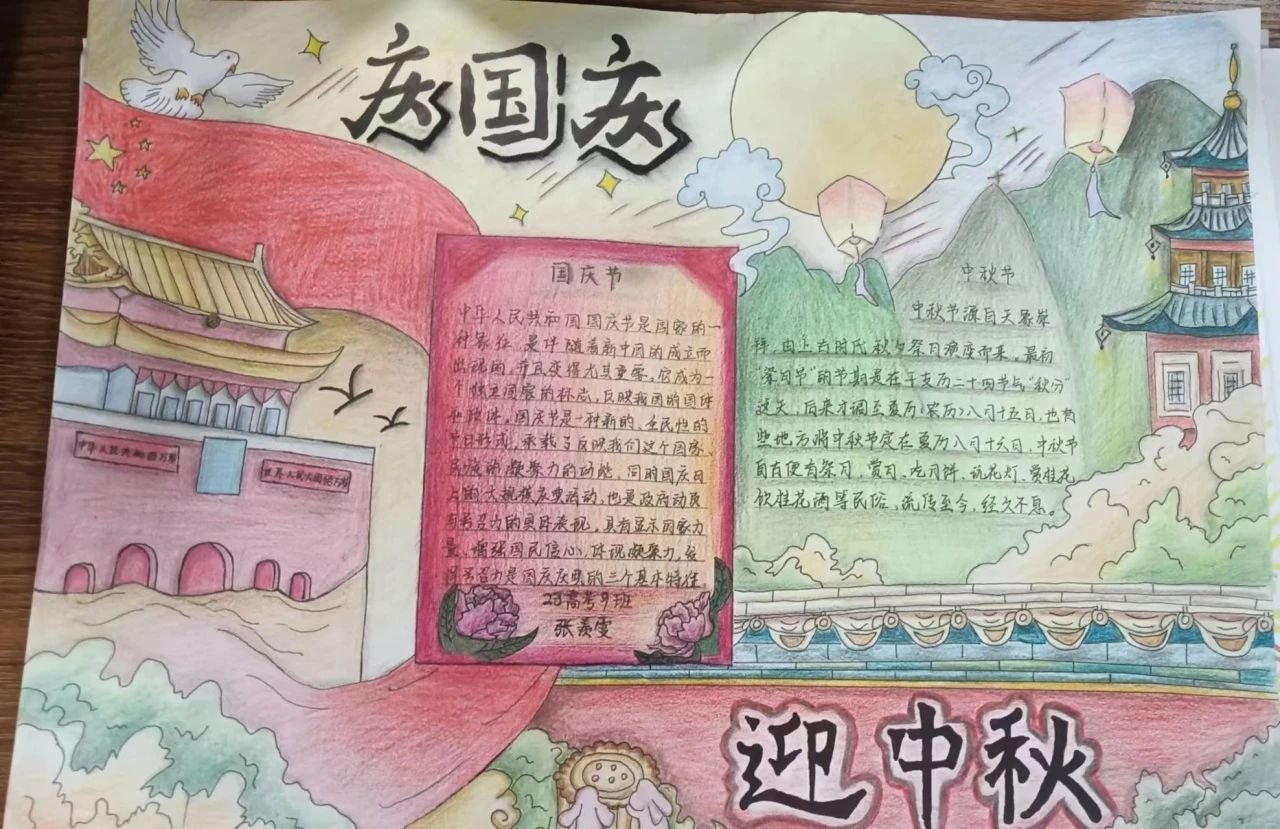 庆国庆
国庆节
中华人民共和国国庆节是国家的一
种象征,是伴随着新中国的成立而
出现的,并且变得尤其重要。它成为一
个独立国家的标志,反映我国的国体
和政体。国庆节是一种新的、全民性的
节日形式,承载了反映我们这个国家、
民族的凝聚力的功能。同时国庆日
上的大规模庆典活动,也是政府动员
与号召力的具体表现。具有显示国家力
量、增强国民信心,体现凝聚力,发
挥号召力是国庆庆典的三个基本特征。
23高考9班
张羡雯
中秋节
中秋节源自天象崇
拜,由上古时代秋夕祭月演变而来。最初
“祭月节”的节期是在干支历二十四节气“秋分”
这天,后来才调至夏历(农历)八月十五日,也有
些地方将中秋节定在夏历八月十六日。中秋节
自古便有祭月、赏月、吃月饼、玩花灯、赏桂花
饮桂花酒等民俗,流传至今,经久不息。
中华人民共和国万岁
世界人民大团结万岁
迎中秋